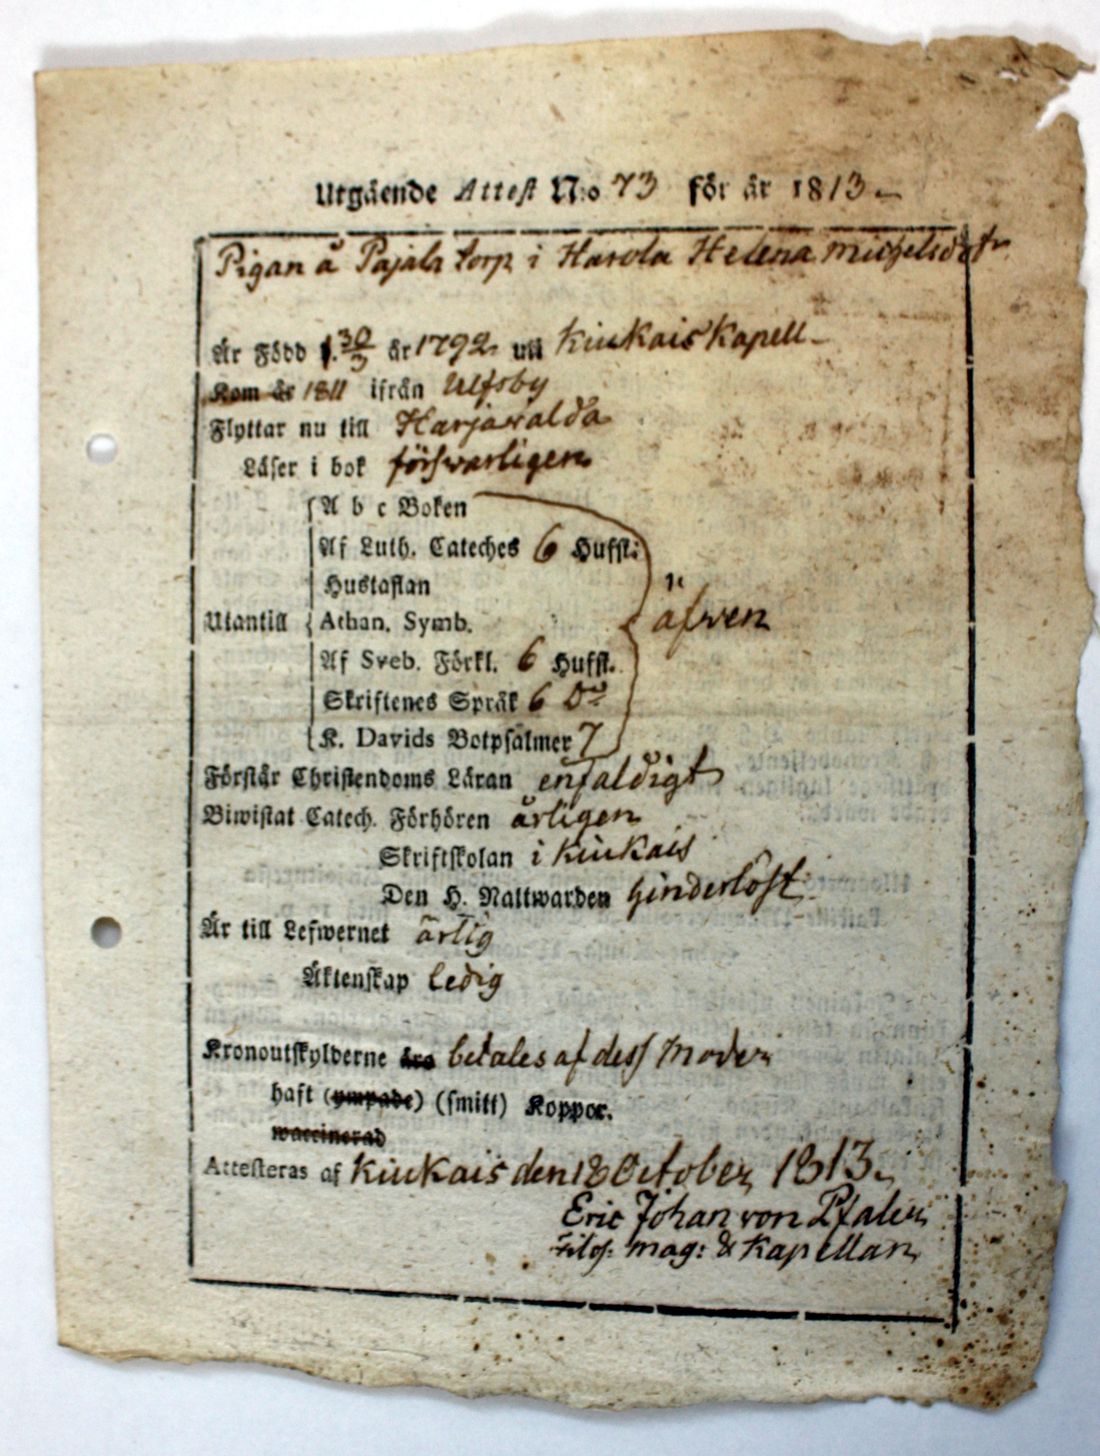 Utgående Attest N:o 73 för år 1813.
Pigan å Pajala torp i Harola Helena Michelsdotr
Är Född d. 30/3 år 1792 uti Kiukais Kapell
Kom år 1811 ifrån Ulfsby
Flyttar nu till Harjavalda
Läser i bok försvarligen
A b c Boken
Af Luth. Cateches 6 Hufst:
Hustaflan
Utantill Athan. Symb. äfven
Af Sveb. Förkl. 6 Hufst.
Skriftenes Språk 6 Do
K. Davids Botpsalmer 7
Förstår Christendoms Läran enfaldigt
Biwistat Catech. Förhören årligen
Skriftskolan i Kiukais
Den H. Nattwarden hinderlöst
Är till Lefwernet ärlig
Äktenskap ledig
Kronoutskylderne äro betales af dess Moder
haft (ympade) (smitt) Koppor.
waccinerad
Attesteras af Kiukais den 18 October 1813.
Eric Johan von Pfaler
Filos: mag: & Kapellan